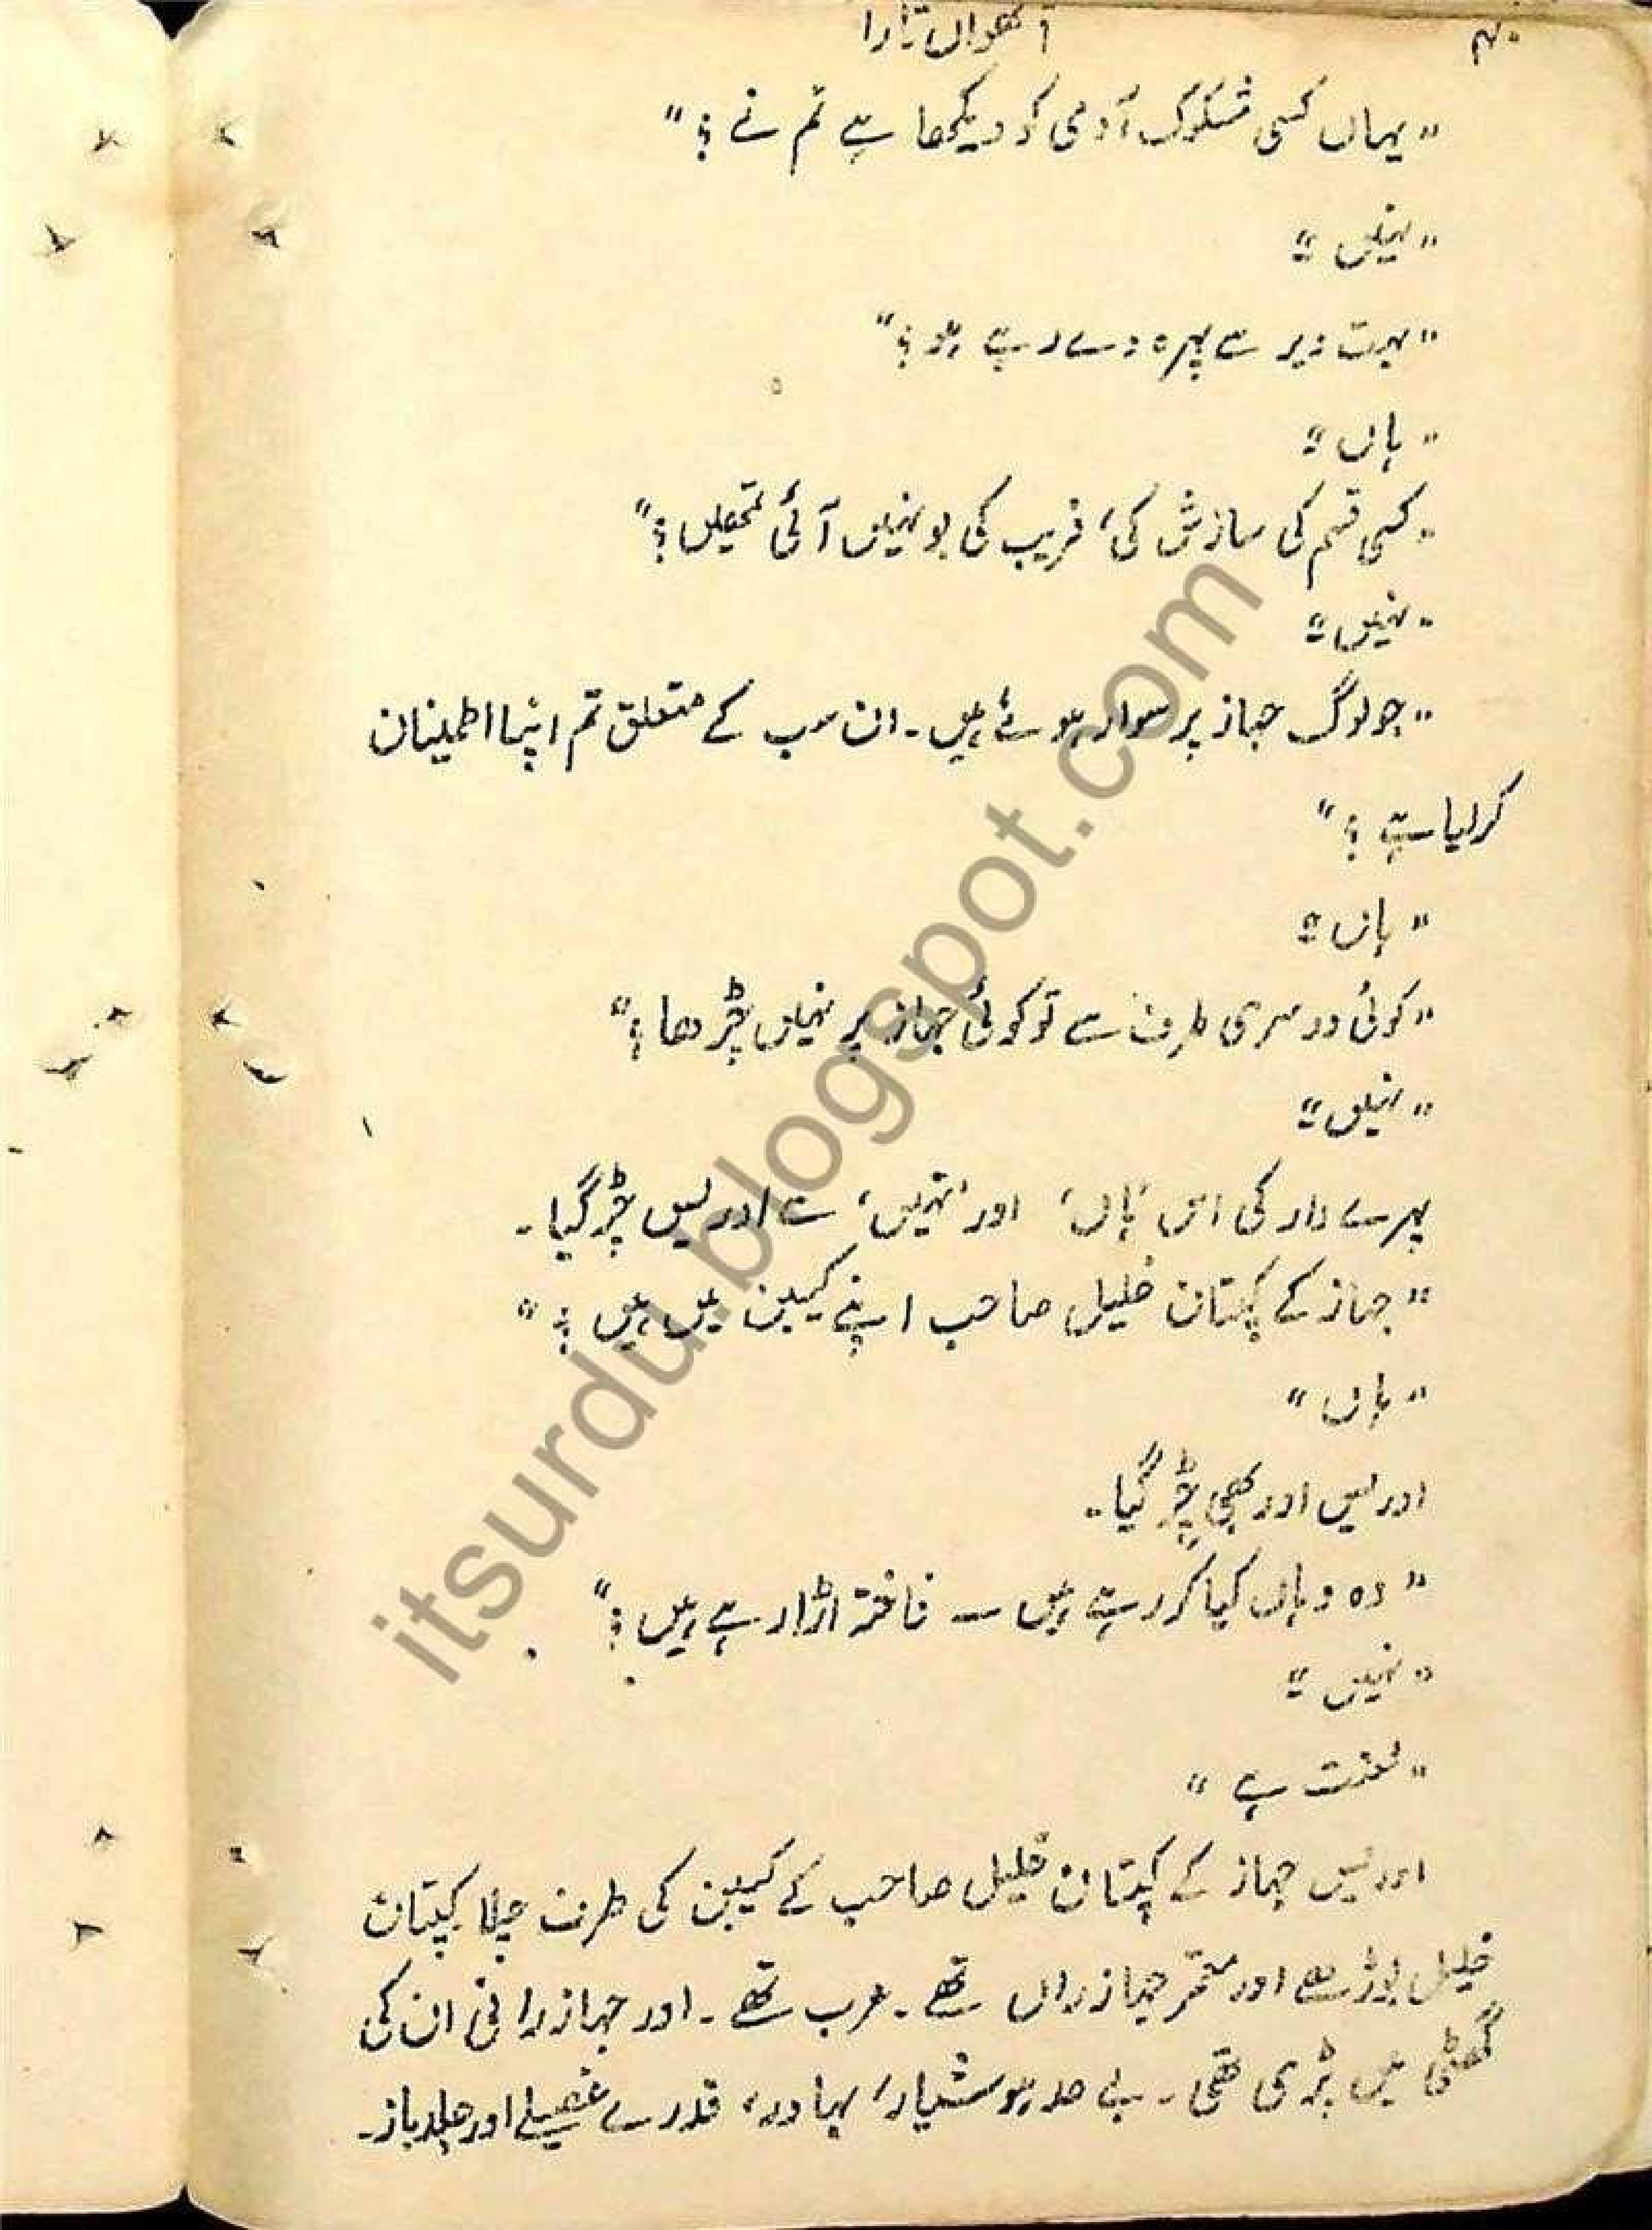 ۴۰
آٹھواں تارا
"یہاں کسی مشکوک آدمی کو دیکھا ہے تم نے ؟"
"نہیں"
"بہت دیر سے پہرہ دے رہے ہو ؟"
"ہاں"
"کسی قسم کی سازش کی، فریب کی بو نہیں آئی تمھیں ؟"
"نہیں"
"جو لوگ جہاز پر سوار ہوئے ہیں۔ ان سب کے متعلق تم اپنا اطمینان
کر لیا ہے ؟"
"ہاں"
"کوئی دوسری طرف سے تو کوئی جہاز پر نہیں چڑھا ؟"
"نہیں"
پہرے دار کی اس 'ہاں' اور 'نہیں' سے ادریس چڑ گیا۔
"جہاز کے کپتان خلیل صاحب اپنے کیبن میں ہیں ؟"
"ہاں"
ادریس اور بھی چِڑ گیا۔
"وہ وہاں کیا کر رہے ہیں — فاختہ اڑا رہے ہیں ؟"
"نہیں"
"لعنت ہے"
ادریس جہاز کے کپتان خلیل صاحب کے کیبن کی طرف چلا کپتان
خلیل بوڑھے اور معمّر جہاز راں تھے۔ عرب تھے۔ اور جہاز رانی ان کی
گھٹی میں پڑی تھی۔ بے حد ہوشیار، بہادر، قدرے غصیلے اور جلد باز۔
itsurdu.blogspot.com